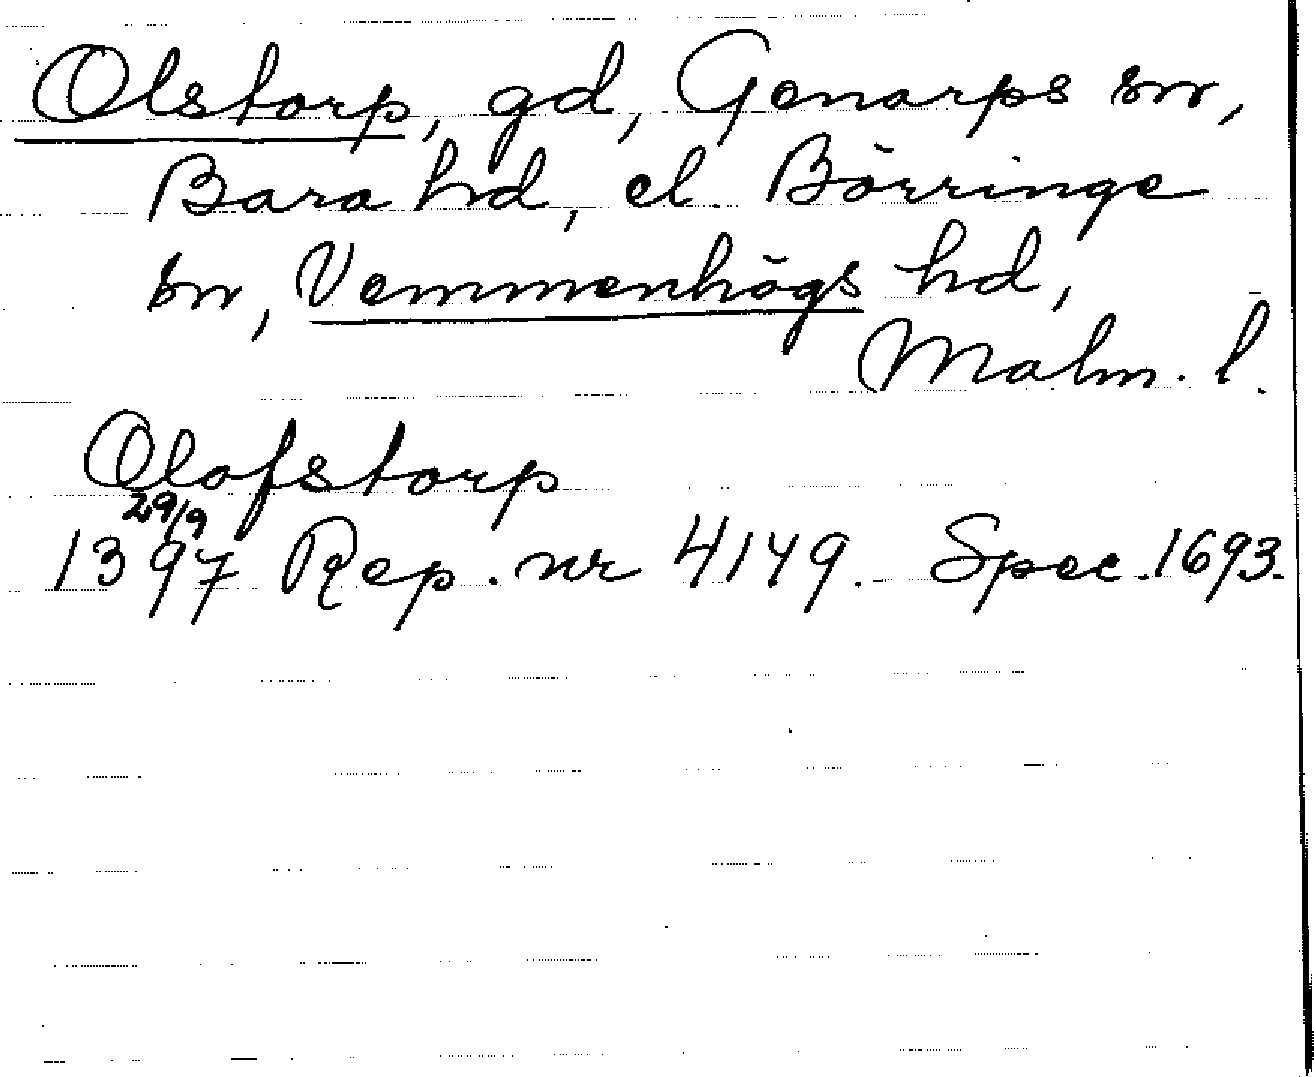 Olstorp, gd, Genarps sn,
Bara hd, el. Börringe
sn, Vemmenhögs hd,
Malm. l.
Olofstorp
29/9
1397 Rep. nr 4149. Spec. 1693.